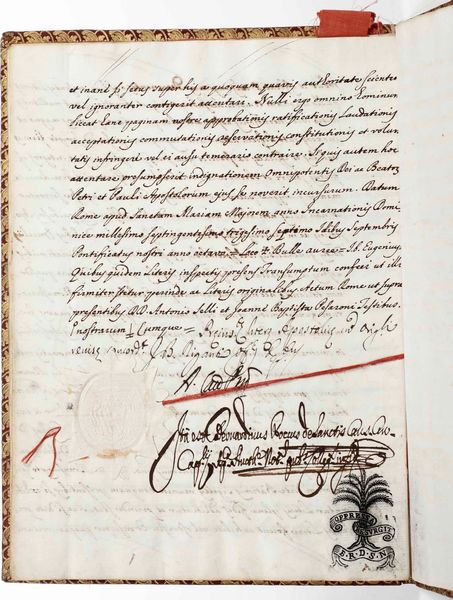 et inane si secus super his a quoquam quavis authoritate scienter
vel ignoranter contigerit attentari. Nulli ergo omnino hominum
liceat hanc paginam nostre approbationis ratificationis laudationis
acceptationis commutationis reservationis constitutionis et volun
tatis infringere vel ei ausu temerario contraire. Si quis autem hoc
attentare presumpserit indignationem Omnipotentis Dei ac Beator
Petri et Pauli Apostolorum ejus se noverit incursurum. Datum
Rome apud Sanctam Mariam Majorem anno Incarnationis Domi
nice millesimo septingentesimo trigesimo septimo Idibus Septembris
Pontificatus nostri anno octavo = Loco Bulle auree = Jd. Eugenius
Quibus quidem Literis inspectis presens Transumptum confeci ut illi
firmiter stetur perinde ac Literis originalibus Actum Rome ut supra
presentibus DD Antonio Selli et Joanne Baptista Pesaroni Testibus.
Cumque =
Ita est Bernardinus Rocus de Sanctis
OPPRESSA SURGIT
E.R.D.S.N